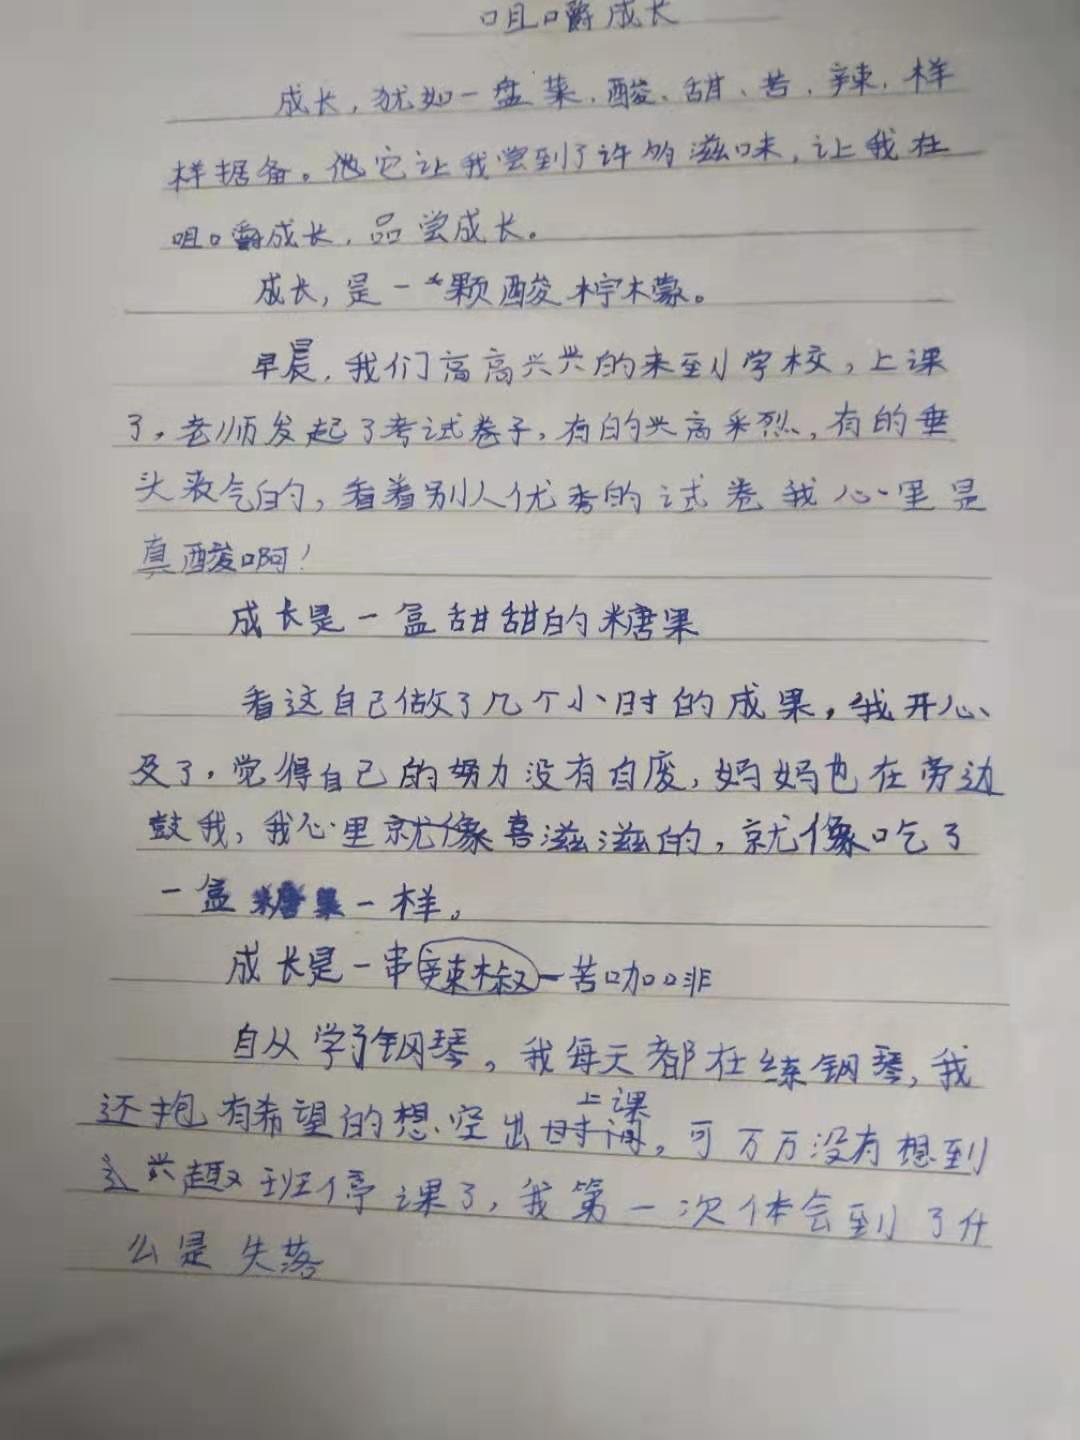 咀嚼成长
成长，犹如一盘菜，酸、甜、苦、辣，样
样据备。他它让我尝到了许的滋味，让我在
咀嚼成长，品尝成长。
成长，是一颗酸柠檬。
早晨，我们高高兴兴的来到学校，上课
了，老师发起了考试卷子，有的兴高采烈，有的垂
头丧气的，看着别人优秀的试卷我心里是
真酸啊！
成长是一盒甜甜的糖果
看这自己做了几个小时的成果，我开心
及了，觉得自己的努力没有白废，妈妈也在旁边
鼓我，我心里就像喜滋滋的，就像吃了
一盒糖果一样。
成长是一串辣椒一苦咖啡
自从学了钢琴，我每天都在练钢琴，我
还抱有希望的想空出上课时间。可万万没有想到
兴趣班停课了，我第一次体会到了什
么是失落